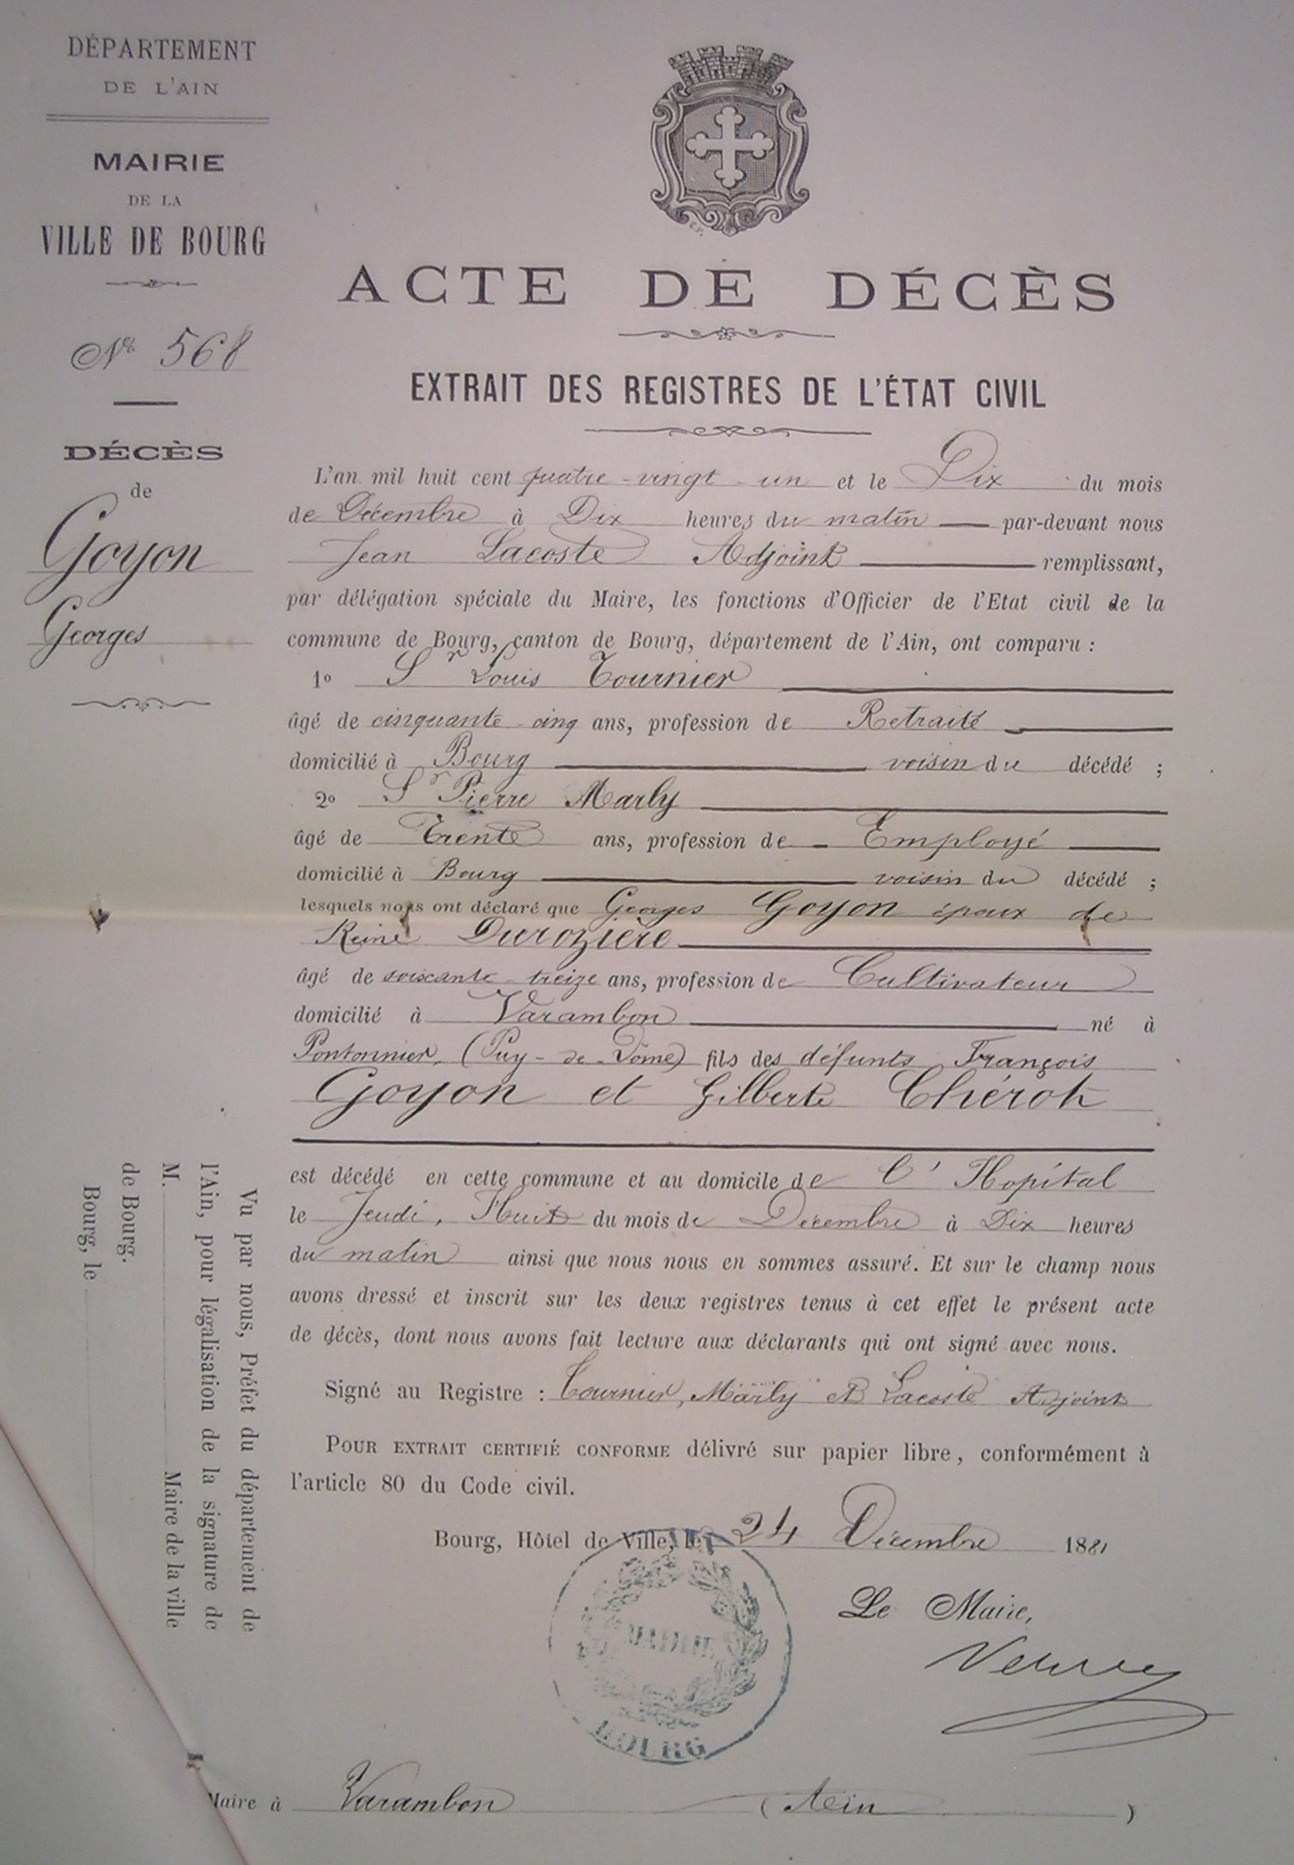 DÉPARTEMENT
DE L'AIN
MAIRIE
DE LA
VILLE DE BOURG
N° 568
DÉCÈS
de
Goyon
Georges
ACTE DE DÉCÈS
EXTRAIT DES REGISTRES DE L'ÉTAT CIVIL
L'an mil huit cent quatre-vingt-un et le Dix du mois
de Décembre à Dix heures du matin par-devant nous
Jean Lacoste Adjoint remplissant,
par délégation spéciale du Maire, les fonctions d'Officier de l'Etat civil de la
commune de Bourg, canton de Bourg, département de l'Ain, ont comparu :
1° Sr Louis Tournier
âgé de cinquante-cinq ans, profession de Retraité
domicilié à Bourg voisin du décédé ;
2° Sr Pierre Marly
âgé de Trente ans, profession de Employé
domicilié à Bourg voisin du décédé ;
lesquels nous ont déclaré que Georges Goyon époux de
Reine Durozière
âgé de soixante-treize ans, profession de Cultivateur
domicilié à Varambon né à
Pontonnier, (Puy-de-Dôme) fils des défunts François
Goyon et Gilberte Chérot
est décédé en cette commune et au domicile de l'Hopital
le Jeudi, Huit du mois de Décembre à Dix heures
du matin ainsi que nous nous en sommes assuré. Et sur le champ nous
avons dressé et inscrit sur les deux registres tenus à cet effet le présent acte
de décès, dont nous avons fait lecture aux déclarants qui ont signé avec nous.
Signé au Registre : Tournier, Marly et Lacoste Adjoint
POUR EXTRAIT CERTIFIÉ CONFORME délivré sur papier libre, conformément à
l'article 80 du Code civil.
Bourg, Hôtel de Ville, le 24 Décembre 1881
Le Maire,
MAIRIE
BOURG
Vu par nous, Préfet du département de
l'Ain, pour légalisation de la signature de
M. Maire de la ville
de Bourg.
Bourg, le
Maire à Varambon (Ain)